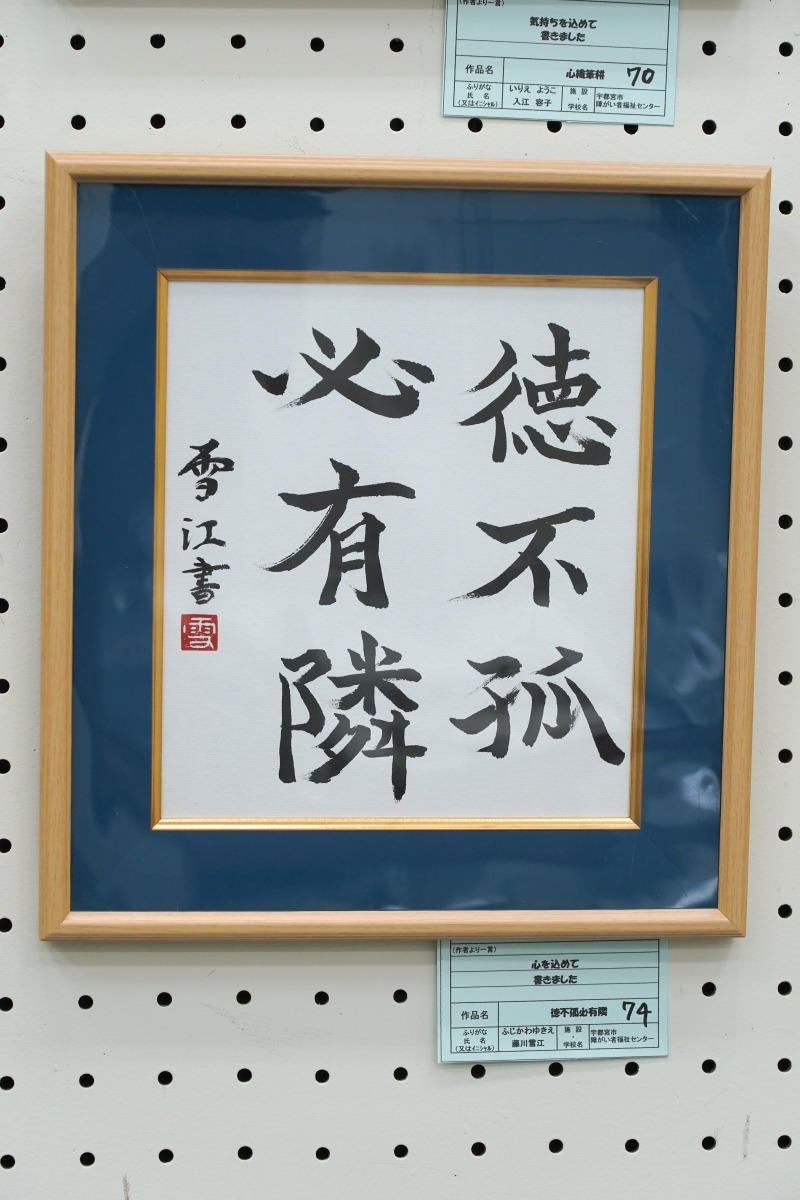 (作者より一言)
気持ちを込めて
書きました
作品名 心織筆耕 70
ふりがな いりえ ようこ
氏名 入江 容子
(又はイニシャル)
施設・学校名 宇都宮市
障がい者福祉センター
徳不孤
必有隣
雪江書
雪
(作者より一言)
心を込めて
書きました
作品名 徳不孤必有隣 74
ふりがな ふじかわゆきえ
氏名 藤川雪江
(又はイニシャル)
施設・学校名 宇都宮市
障がい者福祉センター